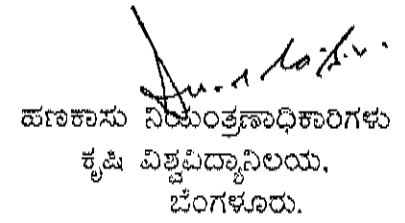 ಹಣಕಾಸು ನಿಯಂತ್ರಣಾಧಿಕಾರಿಗಳು
ಕೃಷಿ ವಿಶ್ವವಿದ್ಯಾನಿಲಯ,
ಬೆಂಗಳೂರು.